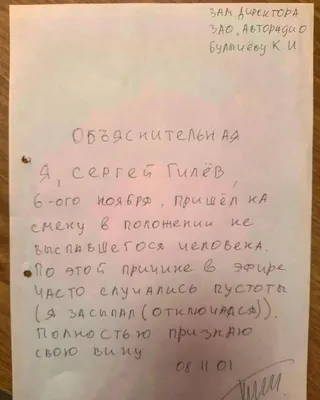 ЗАМ. ДИРЕКТОРА
ЗАО, АВТОРАДИО
БУЛЫЧЁВУ К. И
ОБЪЯСНИТЕЛЬНАЯ
Я, СЕРГЕЙ ГИЛЁВ,
6-ОГО НОЯБРЯ, ПРИШЁЛ НА
СМЕНУ В ПОЛОЖЕНИИ НЕ
ВЫСПАВШЕГОСЯ ЧЕЛОВЕКА.
ПО ЭТОЙ ПРИЧИНЕ В ЭФИРЕ
ЧАСТО СЛУЧАЛИСЬ ПУСТОТЫ
(Я ЗАСЫПАЛ (ОТКЛЮЧАЛСЯ)).
ПОЛНОСТЬЮ ПРИЗНАЮ
СВОЮ ВИНУ
08 11 01